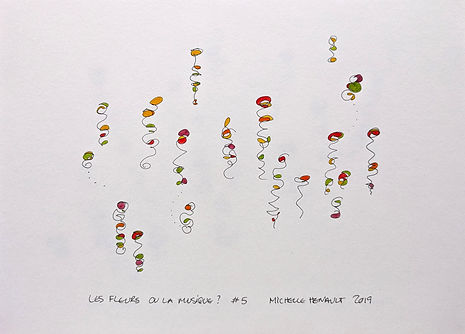 LES FLEURS OU LA MUSIQUE? #5 MICHELLE HENAULT 2019